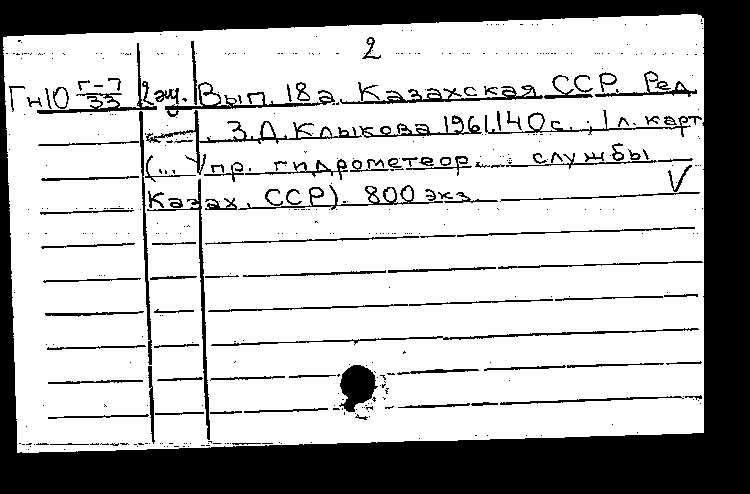 2
Гн10 Г-7/33 2 экз. Вып. 18а. Казахская ССР. Ред
. З.Д. Клыкова 1961. 140 с. ; 1 л. карт.
(... Упр. гидрометеор. . службы
Казах. ССР). 800 экз.